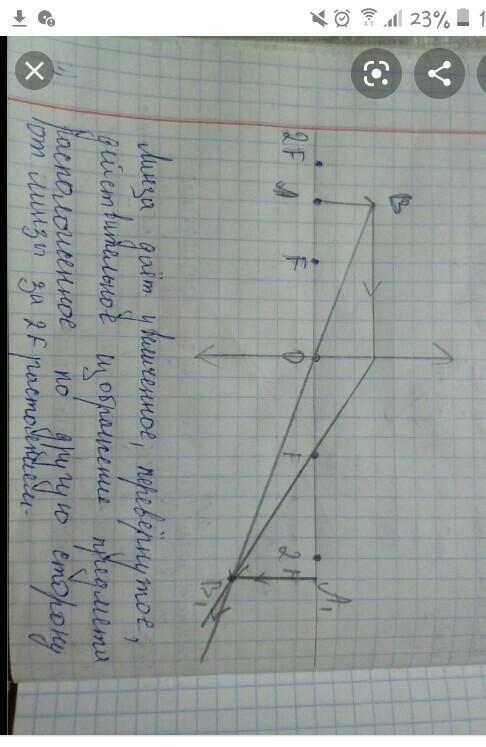 23% 1
1)
B
2F A F O F 2F A₁
B₁
Линза даёт увеличенное, перевёрнутое,
действительное изображение предмета
расположенное по другую сторону
от линзы за 2F растоянием.